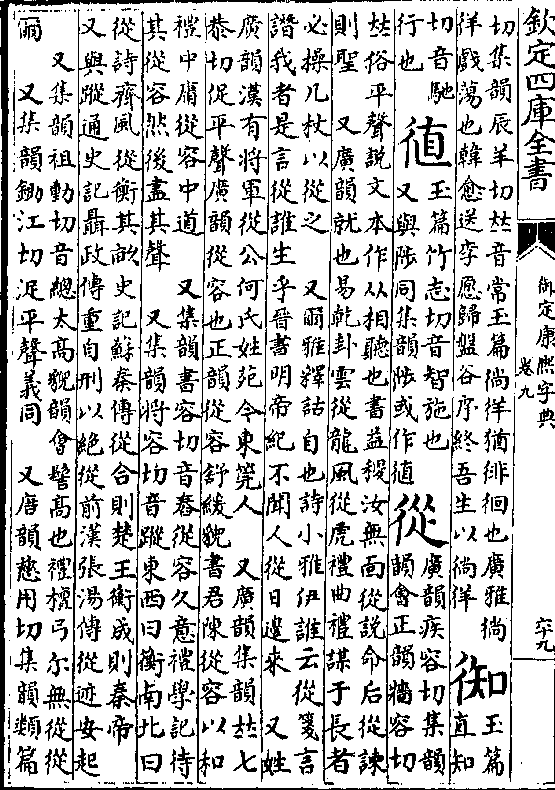 欽定四庫全書
御定康熙字典
卷九
六十九
切集韻辰羊切𠀤音常玉篇徜徉猶徘徊也廣雅徜
徉戲蕩也韓愈送李愿歸盤谷序終吾生以徜徉
𢓜玉篇直知
切音馳
行也
徝玉篇竹志切音智施也
又與陟同集韻陟或作徝
從廣韻疾容切集韻
韻會正韻牆容切
𠀤俗平聲說文本作从相聽也書益稷汝無面從說命后從諫
則聖 又廣韻就也易乾卦雲從龍風從虎禮曲禮謀于長者
必操几杖以從之 又爾雅釋詁自也詩小雅伊誰云從箋言
譖我者是言從誰生乎晉書明帝紀不聞人從日邊來 又姓
廣韻漢有將軍從公何氏姓苑今東筦人 又廣韻集韻𠀤七
恭切促平聲廣韻從容也正韻從容舒緩貌書君陳從容以和
禮中庸從容中道 又集韻書容切音舂從容久意禮學記待
其從容然後盡其聲 又集韻將容切音蹤東西曰衡南北曰
從詩齊風從衡其畝史記蘇秦傳從合則楚王衡成則秦帝
又與蹤通史記聶政傳重自刑以絕從前漢張湯傳從迹安起
又集韻祖動切音總太高貌韻會髻高也禮檀弓尔無從從
爾 又集韻鋤江切浞平聲義同 又唐韻慈用切集韻類篇